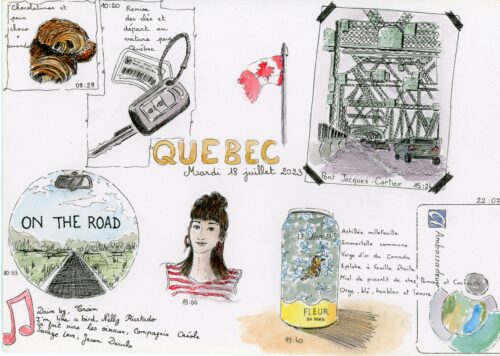 Chocolatines et
pain
choco
amande
08:28
10:20
Remise
des clés et
départ en
voiture pour
Québec.
QUEBEC
Mardi 18 juillet 2023
Pont Jacques-Cartier
15:21
ON THE ROAD
10:53
Drive by, Train
I'm like a bird, Nelly Furtado
Ça fait rire les oiseaux, Compagnie Créole
Savage Love, Jason Derulo
19:00
FLEUR
DU NORD
19:40
Achillée millefeuille
Immortelle commune
Verge d'or du Canada
Epilobe à feuille étroite
Miel de pissenlit de chez
Orge, blé, houblon et levure
22:07
Ambassadeur